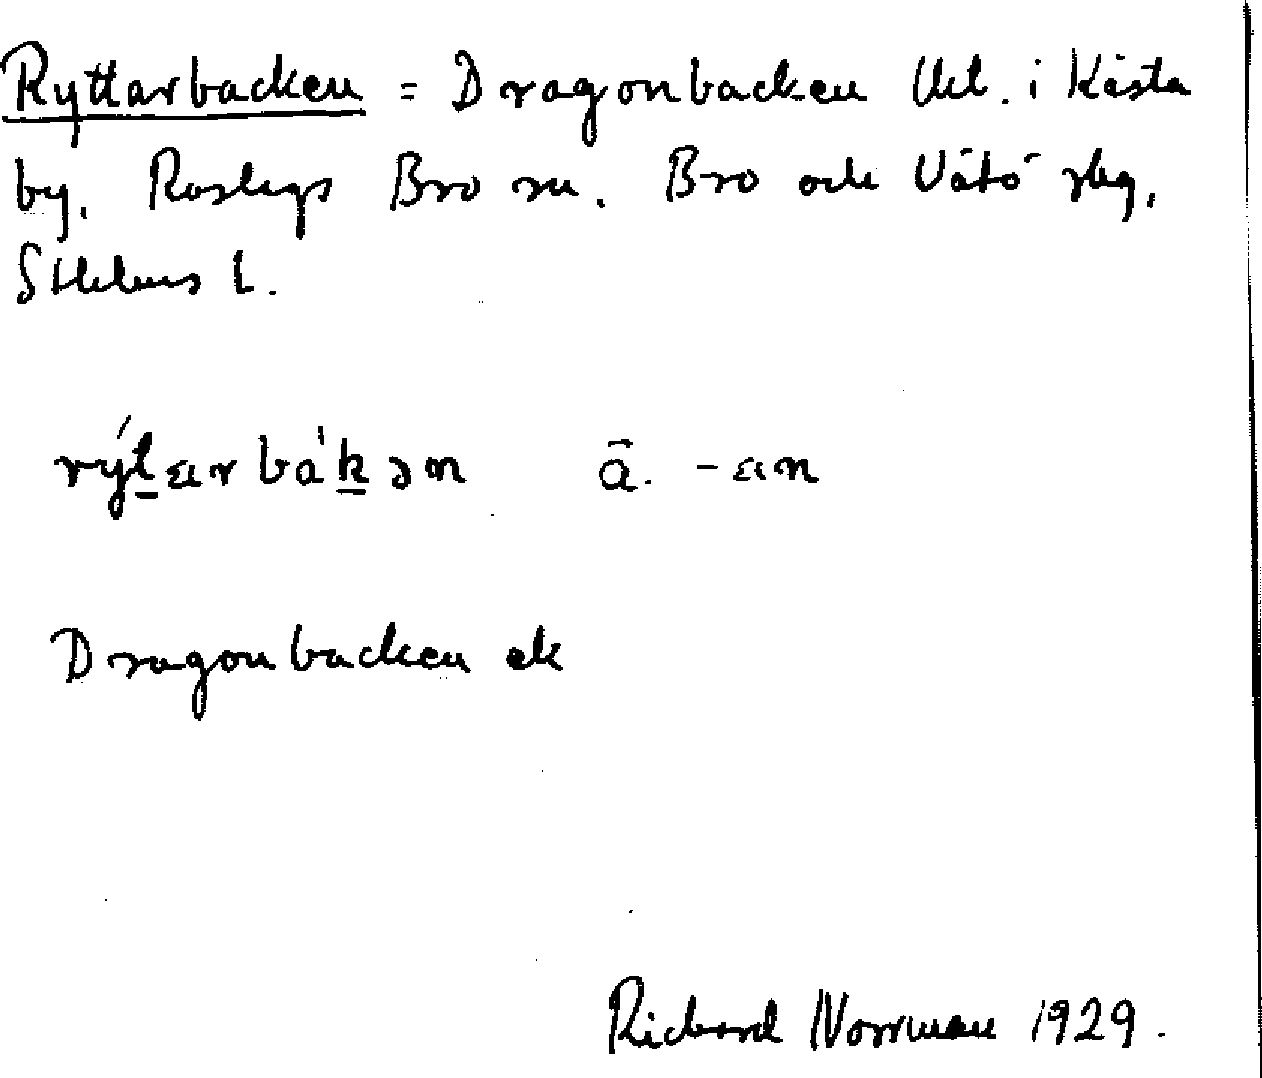 Ryttarbacken = Dragonbacken Utl. i Kåsta
by. Roslags Bro sn. Bro och Vätö skg,
Sthlms l.
rý́tarbák̠ən ā̂. -an
Dragonbacken ek
Richard Norrman 1929.